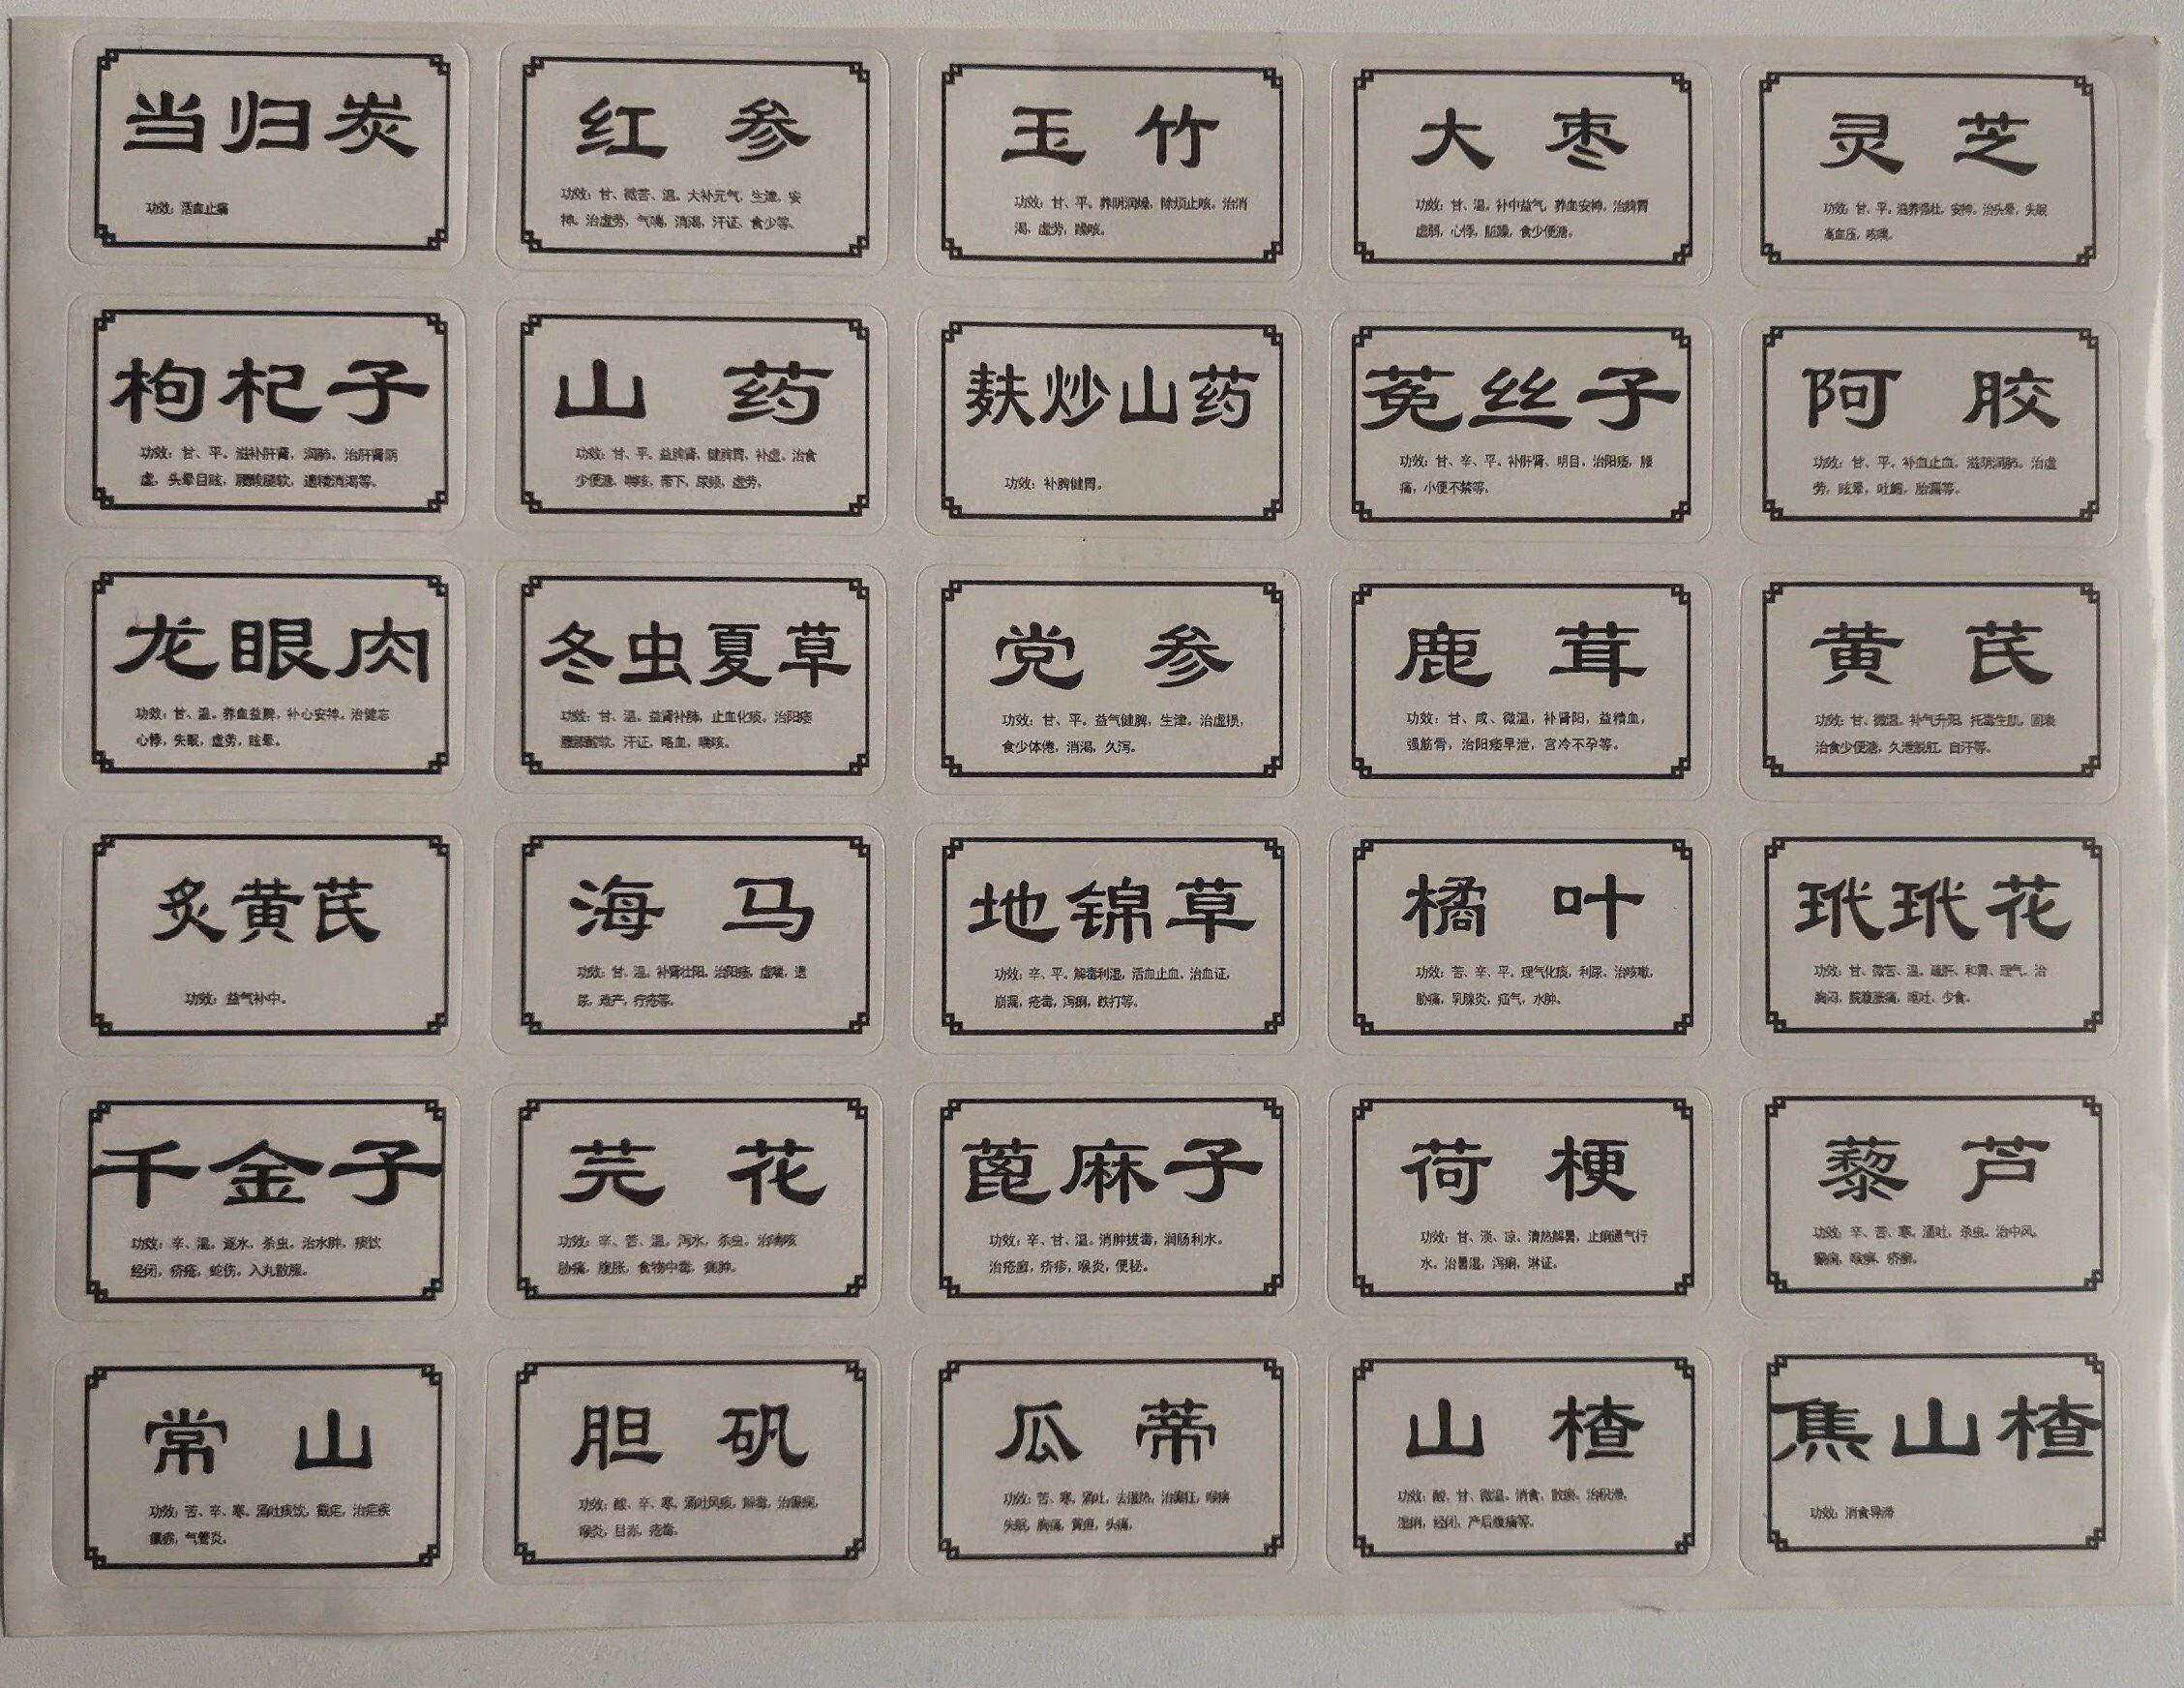 当归炭
功效：活血止痛
红参
功效：甘、微苦、温。大补元气，生津，安
神。治虚劳，气喘，消渴，汗证，食少等。
玉竹
功效：甘、平。养阴润燥，除烦止咳。治消
渴，虚劳，燥咳。
大枣
功效：甘、温。补中益气，养血安神，治脾胃
虚弱，心悸，脏躁，食少便溏。
灵芝
功效：甘、平。滋养强壮，安神。治头晕，失眠
高血压，咳嗽。
枸杞子
功效：甘、平。滋补肝肾，润肺。治肝肾阴
虚，头晕目眩，腰酸腿软，遗精消渴等。
山药
功效：甘、平。益脾肾，健脾胃，补虚。治食
少便溏，喘咳，带下，尿频，虚劳。
麸炒山药
功效：补脾健胃。
菟丝子
功效：甘、辛、平。补肝肾、明目，治阳痿，腰
痛，小便不禁等。
阿胶
功效：甘、平。补血止血，滋阴润肺。治虚
劳，眩晕，吐衄，胎漏等。
龙眼肉
功效：甘、温。养血益脾，补心安神。治健忘
心悸，失眠，虚劳，眩晕。
冬虫夏草
功效：甘、温。益肾补肺，止血化痰。治阳痿
腰膝酸软，汗证，咯血，喘咳。
党参
功效：甘、平。益气健脾，生津。治虚损，
食少体倦，消渴，久泻。
鹿茸
功效：甘、咸、微温，补肾阳，益精血，
强筋骨，治阳痿早泄，宫冷不孕等。
黄芪
功效：甘、微温。补气升阳，托毒生肌，固表
治食少便溏，久泄脱肛，自汗等。
炙黄芪
功效：益气补中。
海马
功效：甘、温。补肾壮阳。治阳痿，虚喘，遗
尿，难产，疔疮等。
地锦草
功效：辛、平。解毒利湿，活血止血。治血证，
崩漏，疮毒，泻痢，跌打等。
橘叶
功效：苦、辛、平。理气化痰，利尿、治咳嗽，
胁痛，乳腺炎，疝气，水肿。
玳玳花
功效：甘、微苦、温。疏肝、和胃、理气。治
胸闷，脘腹胀痛，呕吐、少食。
千金子
功效：辛、温。逐水，杀虫。治水肿，痰饮
经闭，疥疮，蛇伤，入丸散服。
芫花
功效：辛、苦、温。泻水，杀虫。治喘咳
胁痛，腹胀，食物中毒，痈肿。
蓖麻子
功效：辛、甘、温。消肿拔毒，润肠利水。
治疮癣，疥疹，喉炎，便秘。
荷梗
功效：甘、淡、凉、清热解暑，止痢通气行
水。治暑湿，泻痢，淋证。
藜芦
功效：辛、苦、寒。涌吐，杀虫。治中风，
癫痫，喉痹，疥癣。
常山
功效：苦、辛、寒。涌吐痰饮，截疟，治疟疾
瘰疬，气管炎。
胆矾
功效：酸、辛、寒。涌吐风痰，解毒，治癫痫，
喉炎，目赤，疮毒。
瓜蒂
功效：苦、寒，涌吐，去湿热，治癫狂，喉痹
失眠，胸痛，黄疸，头痛。
山楂
功效：酸、甘、微温。消食，散瘀。治积滞，
湿痢，经闭，产后腹痛等。
焦山楂
功效：消食导滞